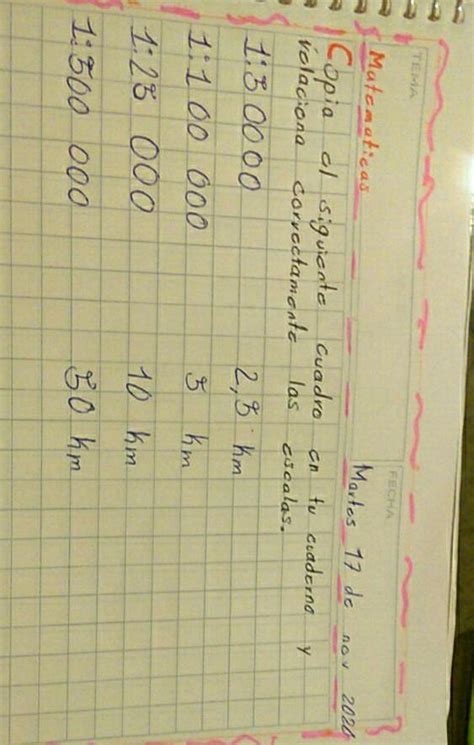 TEMA
FECHA
Matematicas
Martes 17 de nov 2020
Copia el siguiente cuadro en tu cuaderno y
relaciona correctamente las escalas.
1:50000 2,5 km
1:100 000 5 km
1:25 000 10 km
1:500 000 50 km